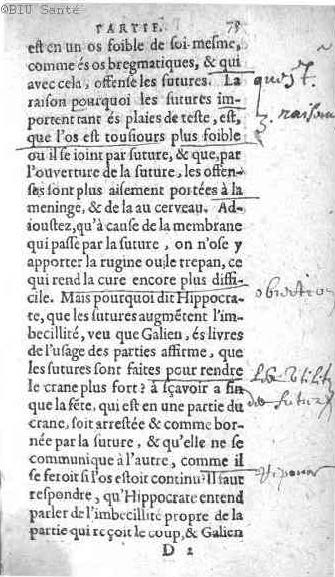 ©BIU Santé
PARTIE. 75
est en un os foible de soi-mesme,
comme és os bregmatiques, & qui
avec cela, offense les sutures. La
raison pourquoi les sutures im-
portent tant és plaies de teste, est,
que l'os est tousiours plus foible
où il se ioint par suture, & que, par
l'ouverture de la suture, les offen-
ses sont plus aisement portées à la
meninge, & de là au cerveau. Ad-
ioustez, qu'à cause de la membrane
qui passe par la suture, on n'ose y
apporter la rugine ou le trepan, ce
qui rend la cure encore plus diffi-
cile. Mais pourquoi dit Hippocra-
te, que les sutures augmẽtent l'im-
becillité, veu que Galien, és livres
de l'usage des parties affirme, que
les sutures sont faites pour rendre
le crane plus fort? à sçavoir a fin
que la fẽte, qui est en une partie du
crane, soit arrestée & comme bor-
née par la suture, & qu'elle ne se
communique à l'autre, comme il
se feroit si l'os estoit continu? Il faut
respondre, qu'Hippocrate entend
parler de l'imbecillité propre de la
partie qui reçoit le coup, & Galien
D 2
quest.
raison